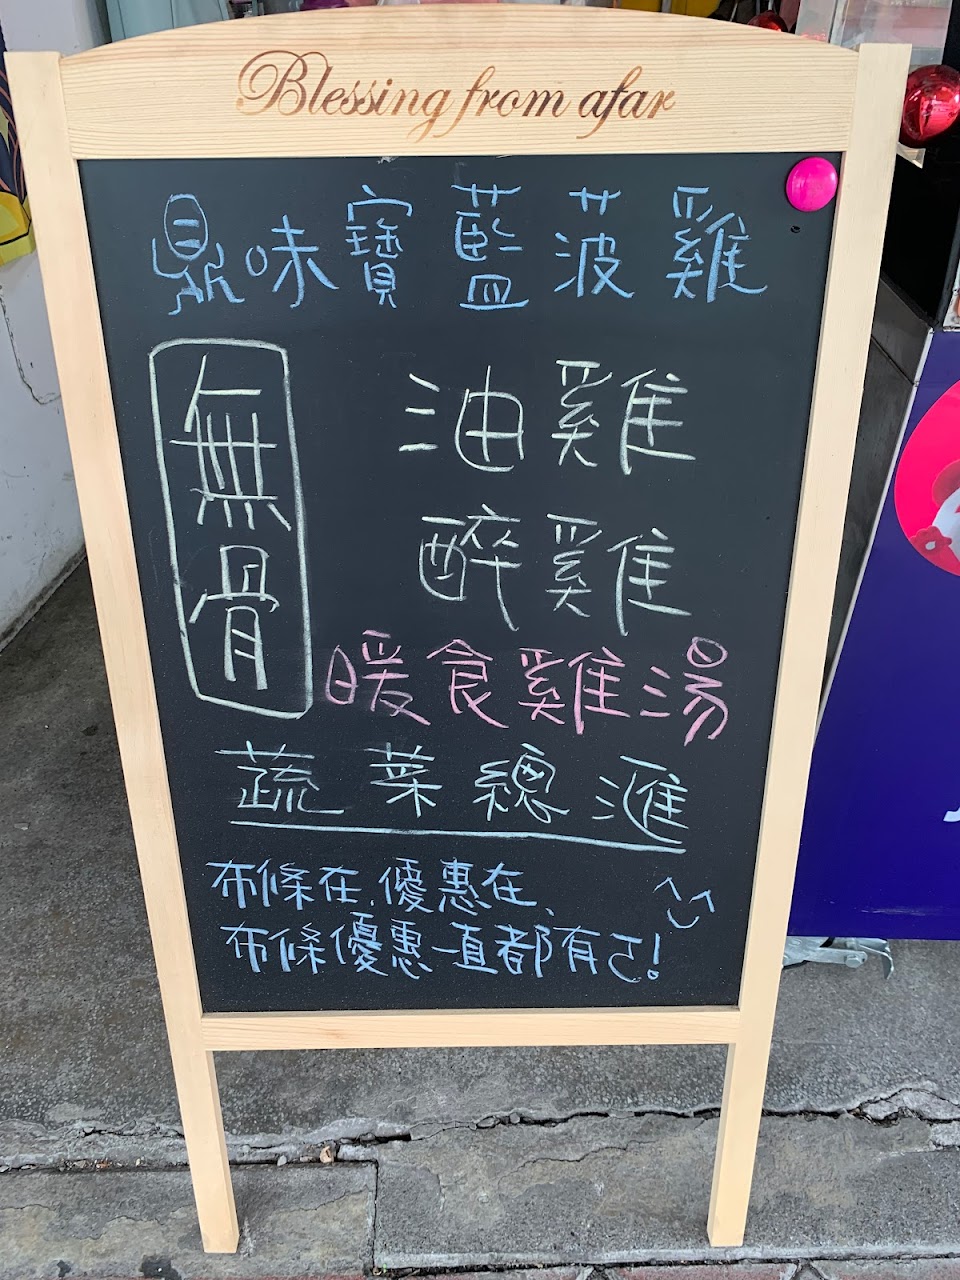 Blessing from afar
鼎味寶藍菠雞
無骨
油雞
醉雞
暖食雞湯
蔬菜總滙
布條在,優惠在、
布條優惠一直都有ㄛ!